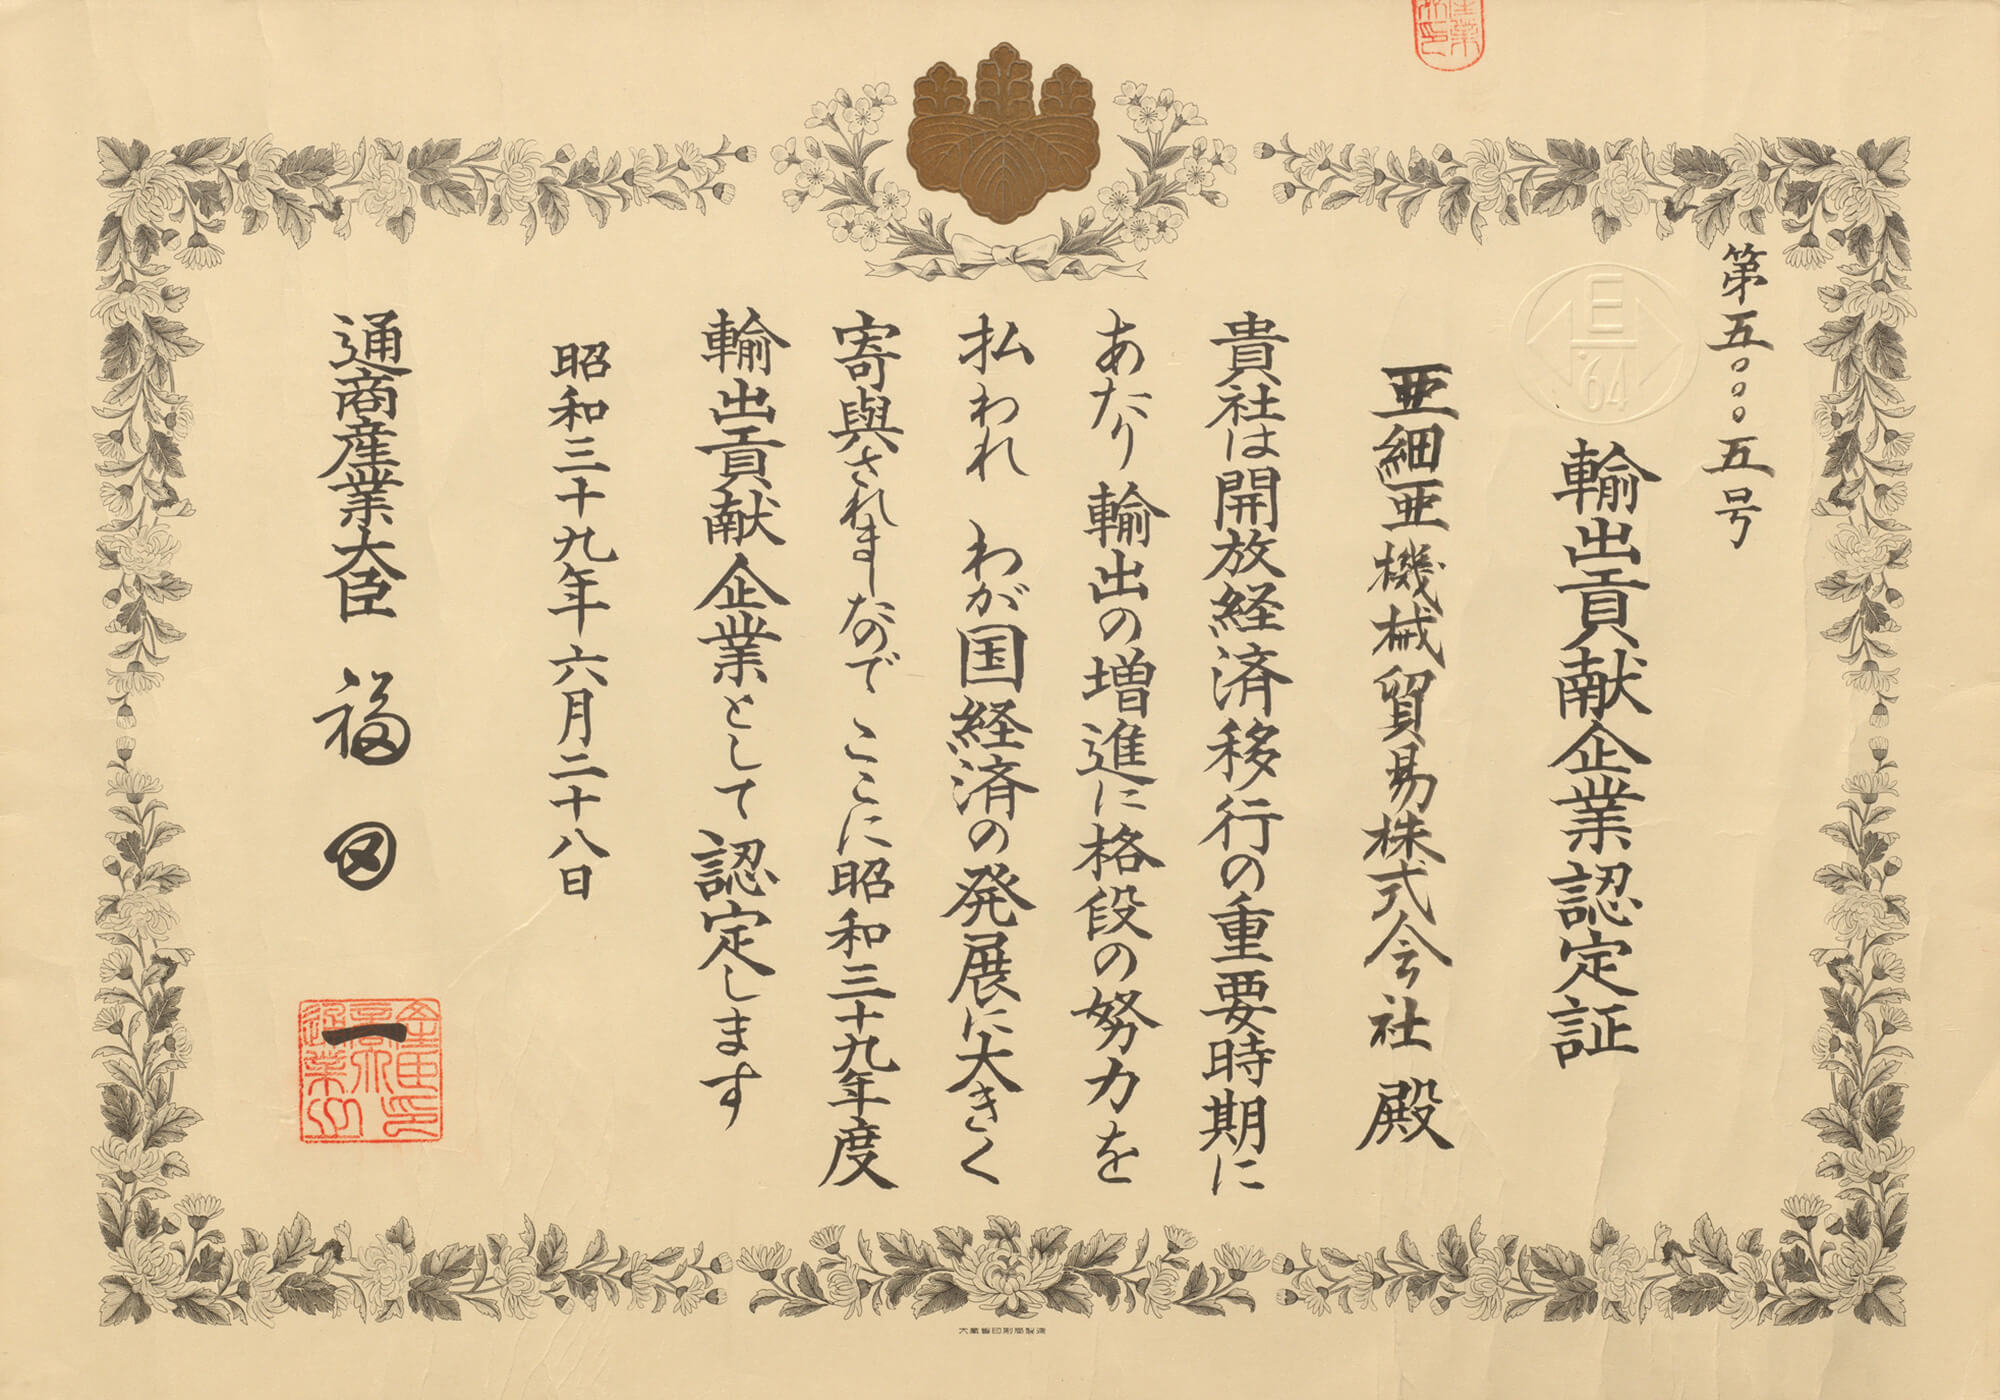 第五〇〇〇五号
E
'64
輸出貢献企業認定証
亜細亜機械貿易株式会社 殿
貴社は開放経済移行の重要時期に
あたり輸出の増進に格段の努力を
払われ わが国経済の発展に大きく
寄與されましたので ここに昭和三十九年度
輸出貢献企業として認定します
昭和三十九年六月二十八日
通商産業大臣 福田 一
大蔵省印刷局製造